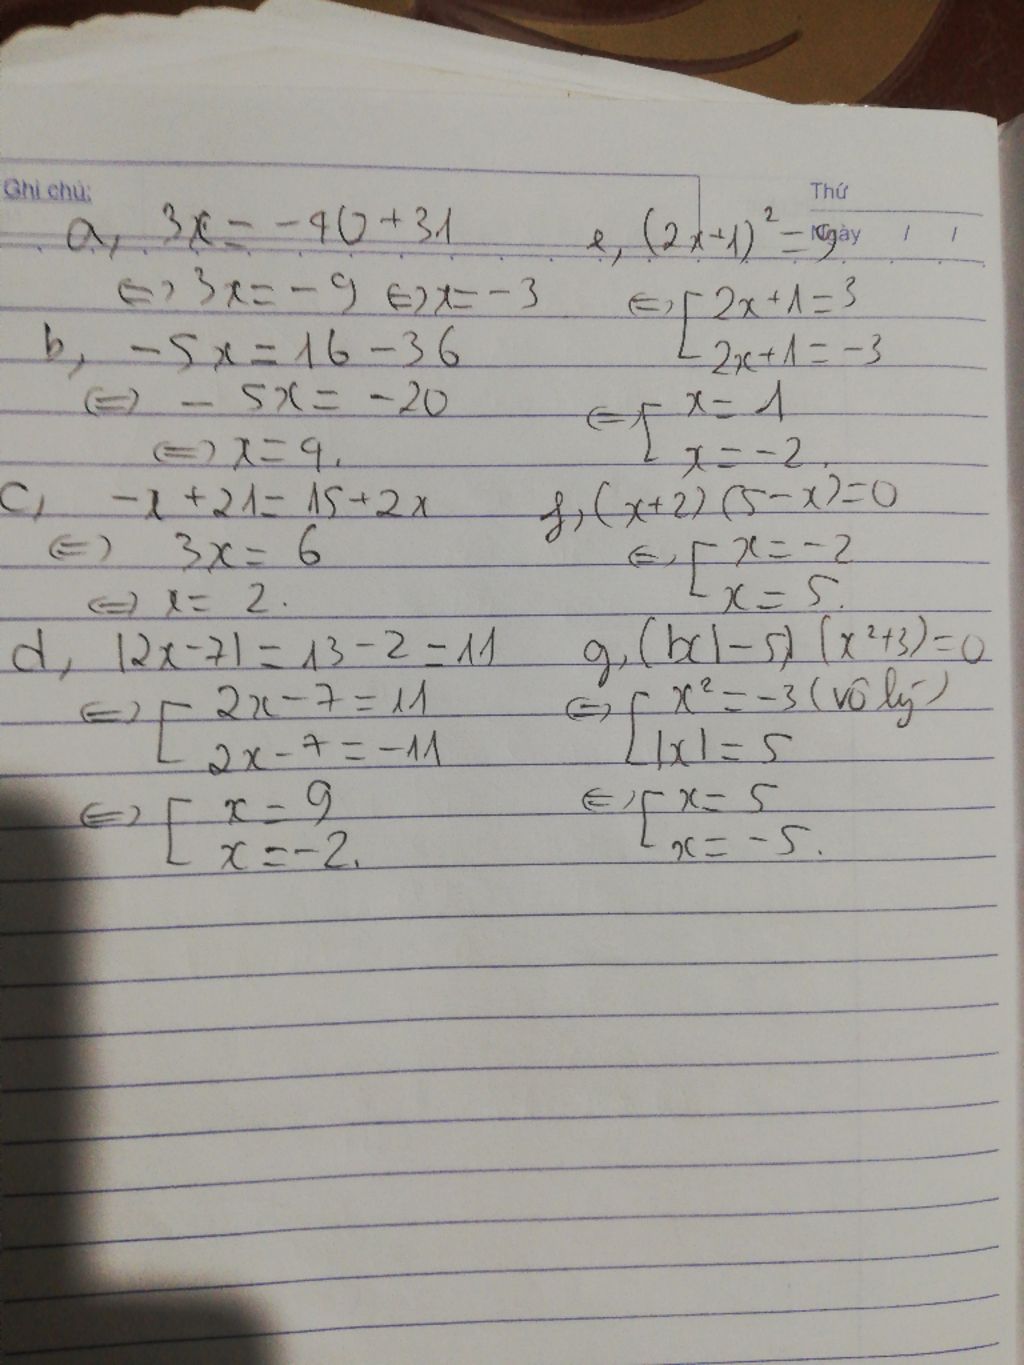 Ghi chú:
Thứ
Ngày / /
a, 3x = -40 + 31
⇔ 3x = -9 ⇔ x = -3
b, -5x = 16 - 36
⇔ - 5x = -20
⇔ x = 4.
c, -x + 21 = 15 + 2x
⇔ 3x = 6
⇔ x = 2.
d, |2x - 7| = 13 - 2 = 11
⇔ [ 2x - 7 = 11
2x - 7 = -11
⇔ [ x = 9
x = -2.
e, (2x+1)² = 9
⇔ [ 2x + 1 = 3
2x + 1 = -3
⇔ [ x = 1
x = -2.
f, (x+2) (5-x) = 0
⇔ [ x = -2
x = 5.
g, (|x| - 5) (x² + 3) = 0
⇔ [ x² = -3 (vô lý)
|x| = 5
⇔ [ x = 5
x = -5.